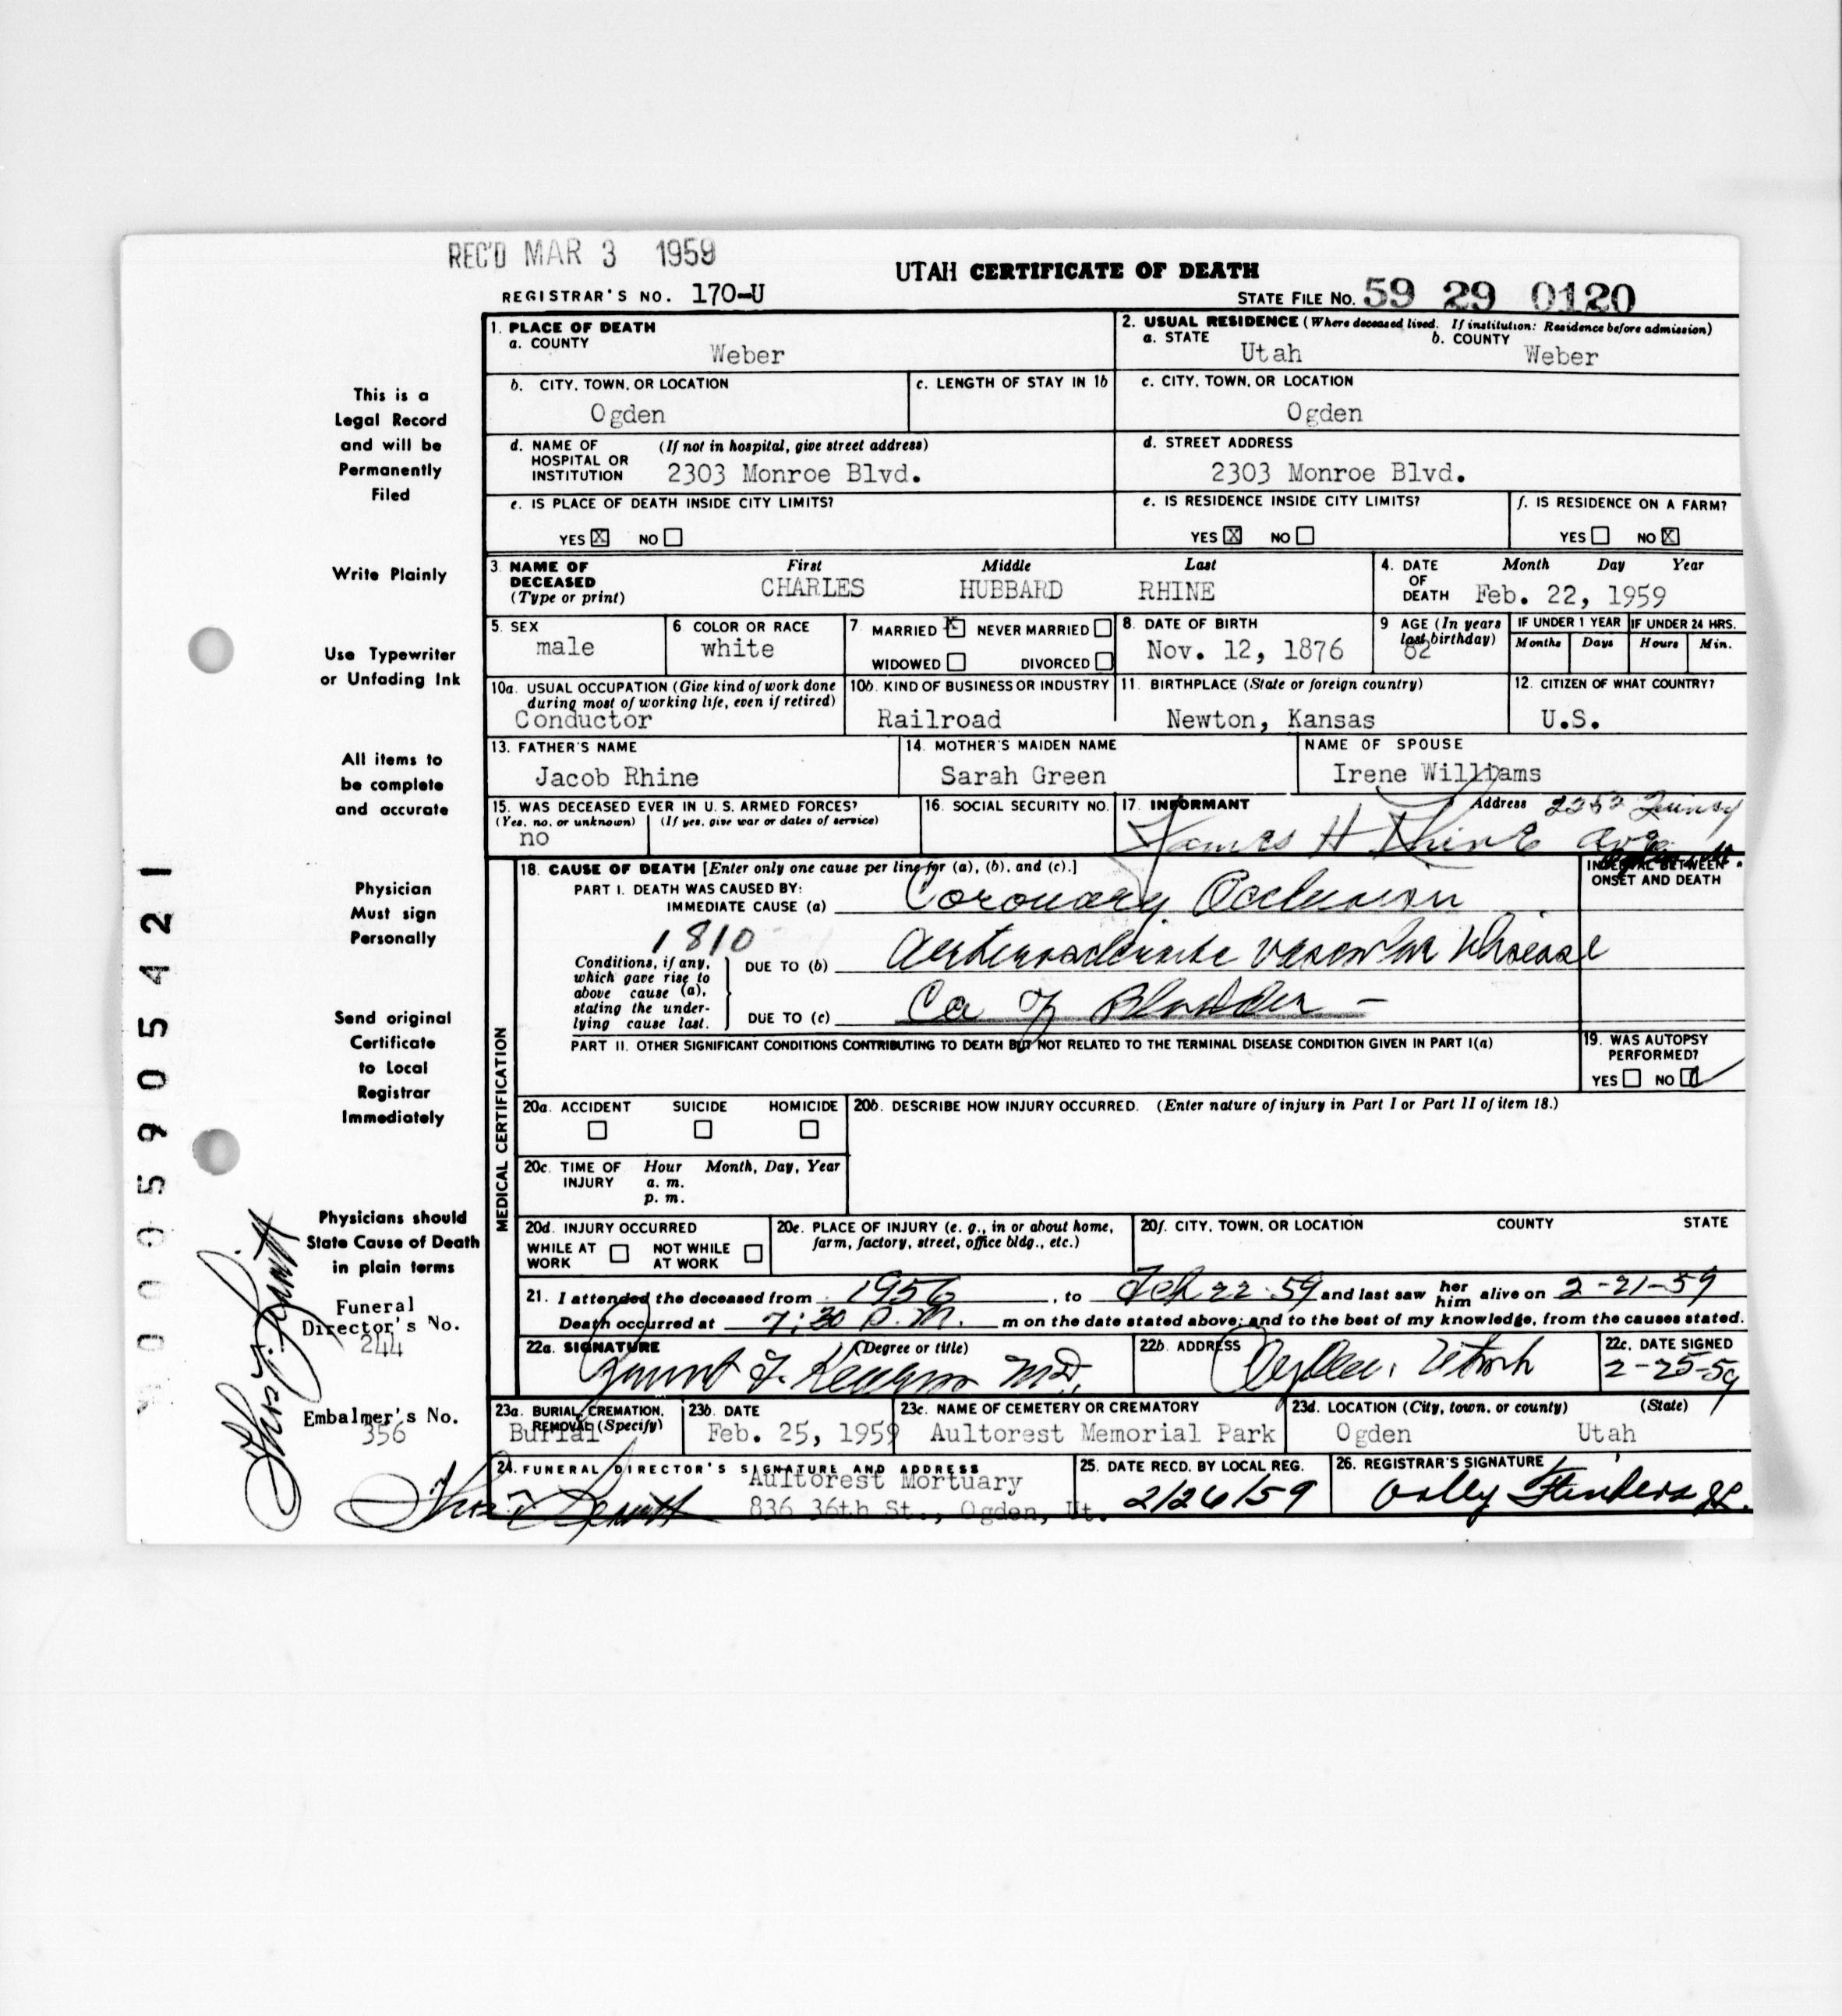 REC'D MAR 3 1959
UTAH CERTIFICATE OF DEATH
REGISTRAR'S NO. 170-U
STATE FILE NO. 59 29 0120
1. PLACE OF DEATH
a. COUNTY
Weber
2. USUAL RESIDENCE (Where deceased lived. If institution: Residence before admission)
a. STATE Utah b. COUNTY Weber
b. CITY, TOWN, OR LOCATION
Ogden
c. LENGTH OF STAY IN 1b
c. CITY, TOWN, OR LOCATION
Ogden
d. NAME OF HOSPITAL OR INSTITUTION (If not in hospital, give street address)
2303 Monroe Blvd.
d. STREET ADDRESS
2303 Monroe Blvd.
e. IS PLACE OF DEATH INSIDE CITY LIMITS?
YES X NO
e. IS RESIDENCE INSIDE CITY LIMITS?
YES X NO
f. IS RESIDENCE ON A FARM?
YES NO X
3. NAME OF DECEASED (Type or print)
First Middle Last
CHARLES HUBBARD RHINE
4. DATE OF DEATH Month Day Year
Feb. 22, 1959
5. SEX
male
6 COLOR OR RACE
white
7 MARRIED X NEVER MARRIED
WIDOWED DIVORCED
8. DATE OF BIRTH
Nov. 12, 1876
9 AGE (In years last birthday)
82
IF UNDER 1 YEAR
Months Days
IF UNDER 24 HRS.
Hours Min.
10a. USUAL OCCUPATION (Give kind of work done during most of working life, even if retired)
Conductor
10b. KIND OF BUSINESS OR INDUSTRY
Railroad
11. BIRTHPLACE (State or foreign country)
Newton, Kansas
12. CITIZEN OF WHAT COUNTRY?
U.S.
13. FATHER'S NAME
Jacob Rhine
14. MOTHER'S MAIDEN NAME
Sarah Green
NAME OF SPOUSE
Irene Williams
15. WAS DECEASED EVER IN U. S. ARMED FORCES?
(Yes, no, or unknown) (If yes, give war or dates of service)
no
16. SOCIAL SECURITY NO.
17. INFORMANT Address
James H Rhine Ave
18. CAUSE OF DEATH [Enter only one cause per line for (a), (b), and (c).]
INTERVAL BETWEEN ONSET AND DEATH
PART I. DEATH WAS CAUSED BY:
IMMEDIATE CAUSE (a) Coronary Occlusion
1810
Conditions, if any, which gave rise to above cause (a), stating the underlying cause last.
DUE TO (b) Arteriosclerotic vascular disease
DUE TO (c) Ca of Bladder -
PART II. OTHER SIGNIFICANT CONDITIONS CONTRIBUTING TO DEATH BUT NOT RELATED TO THE TERMINAL DISEASE CONDITION GIVEN IN PART I(a)
19. WAS AUTOPSY PERFORMED?
YES NO
MEDICAL CERTIFICATION
20a. ACCIDENT SUICIDE HOMICIDE
20b. DESCRIBE HOW INJURY OCCURRED. (Enter nature of injury in Part I or Part II of item 18.)
20c. TIME OF INJURY Hour Month, Day, Year
a. m.
p. m.
20d. INJURY OCCURRED
WHILE AT WORK NOT WHILE AT WORK
20e. PLACE OF INJURY (e. g., in or about home, farm, factory, street, office bldg., etc.)
20f. CITY, TOWN, OR LOCATION COUNTY STATE
21. I attended the deceased from 1956, to Feb 22-59 and last saw her him alive on 2-21-59
Death occurred at 7:30 P.M. m on the date stated above; and to the best of my knowledge, from the causes stated.
22a. SIGNATURE (Degree or title)
M.D.
22b. ADDRESS
Ogden, Utah
22c. DATE SIGNED
2-25-59
23a. BURIAL, CREMATION, REMOVAL (Specify)
Burial
23b. DATE
Feb. 25, 1959
23c. NAME OF CEMETERY OR CREMATORY
Aultorest Memorial Park
23d. LOCATION (City, town, or county) (State)
Ogden Utah
24. FUNERAL DIRECTOR'S SIGNATURE AND ADDRESS
Aultorest Mortuary
836 36th St., Ogden, Ut.
25. DATE RECD. BY LOCAL REG.
2/26/59
26. REGISTRAR'S SIGNATURE
This is a
Legal Record
and will be
Permanently
Filed
Write Plainly
Use Typewriter
or Unfading Ink
All items to
be complete
and accurate
Physician
Must sign
Personally
Send original
Certificate
to Local
Registrar
Immediately
Physicians should
State Cause of Death
in plain terms
Funeral
Director's No.
244
Embalmer's No.
356
0095905421